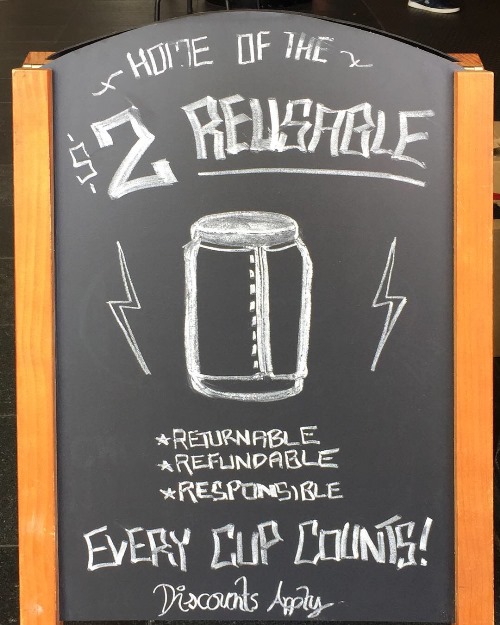 HOME OF THE
$2 REUSABLE
*RETURNABLE
*REFUNDABLE
*RESPONSIBLE
EVERY CUP COUNTS!
Discounts Apply